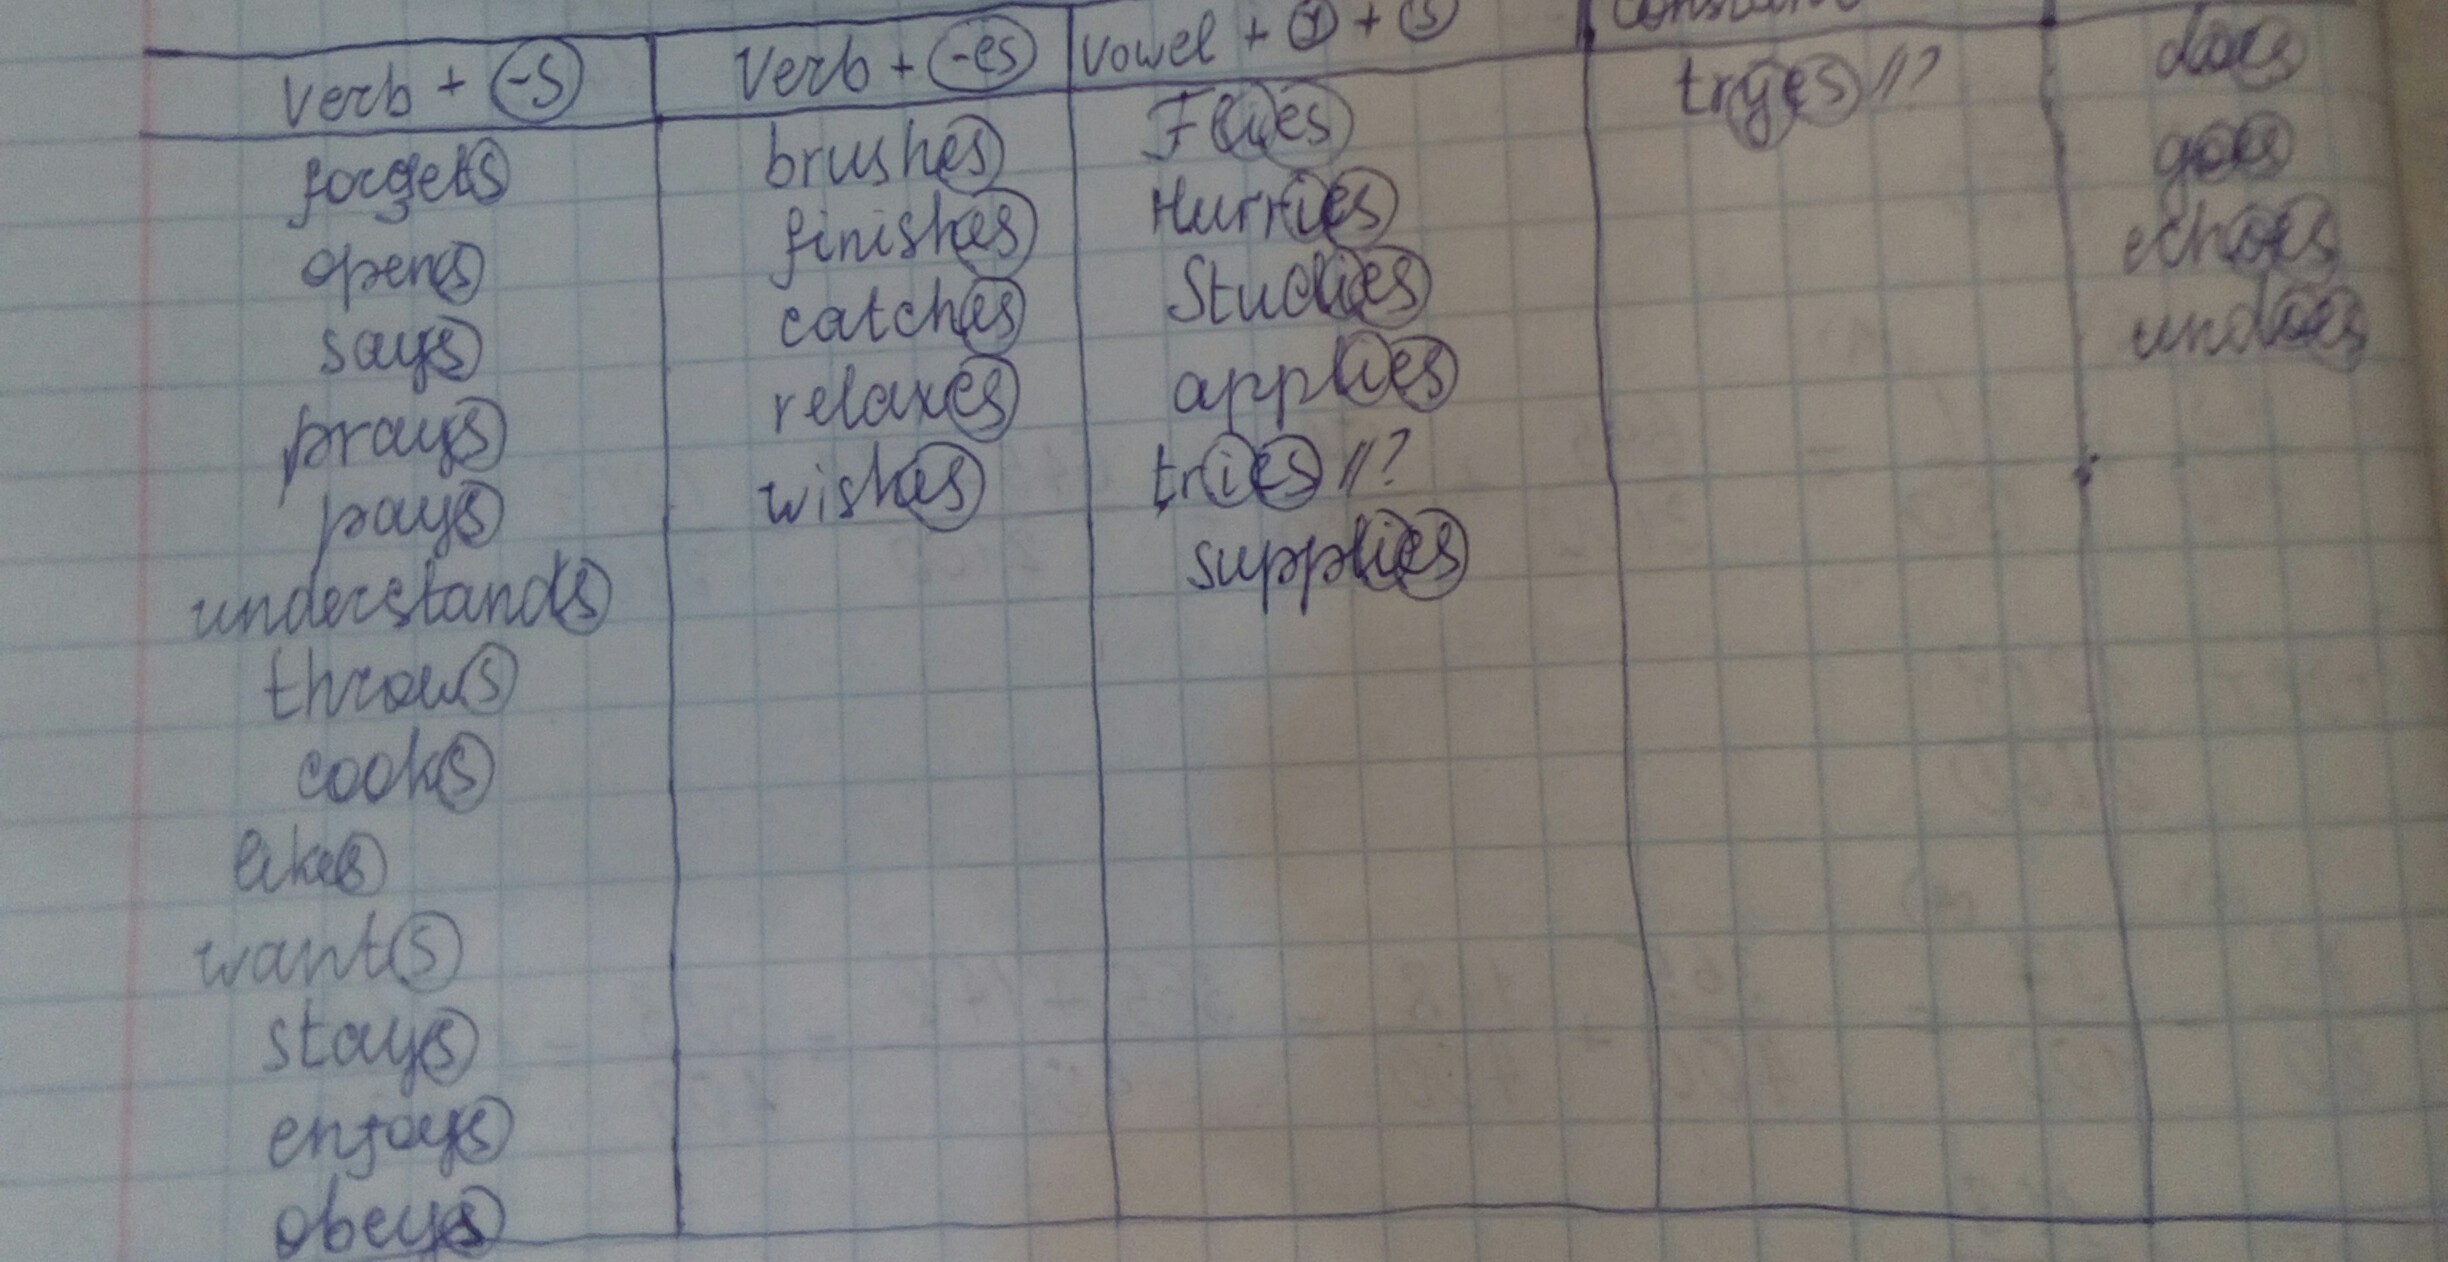 Verb + -s
forgets
opens
says
prays
pays
understands
throws
cooks
likes
wants
stays
enjoys
obeys
Verb + -es
brushes
finishes
catches
relaxes
wishes
Vowel + y + s
Flies
Hurries
Studies
applies
tries //?
supplies
tryes //?
does
goes
echoes
undoes